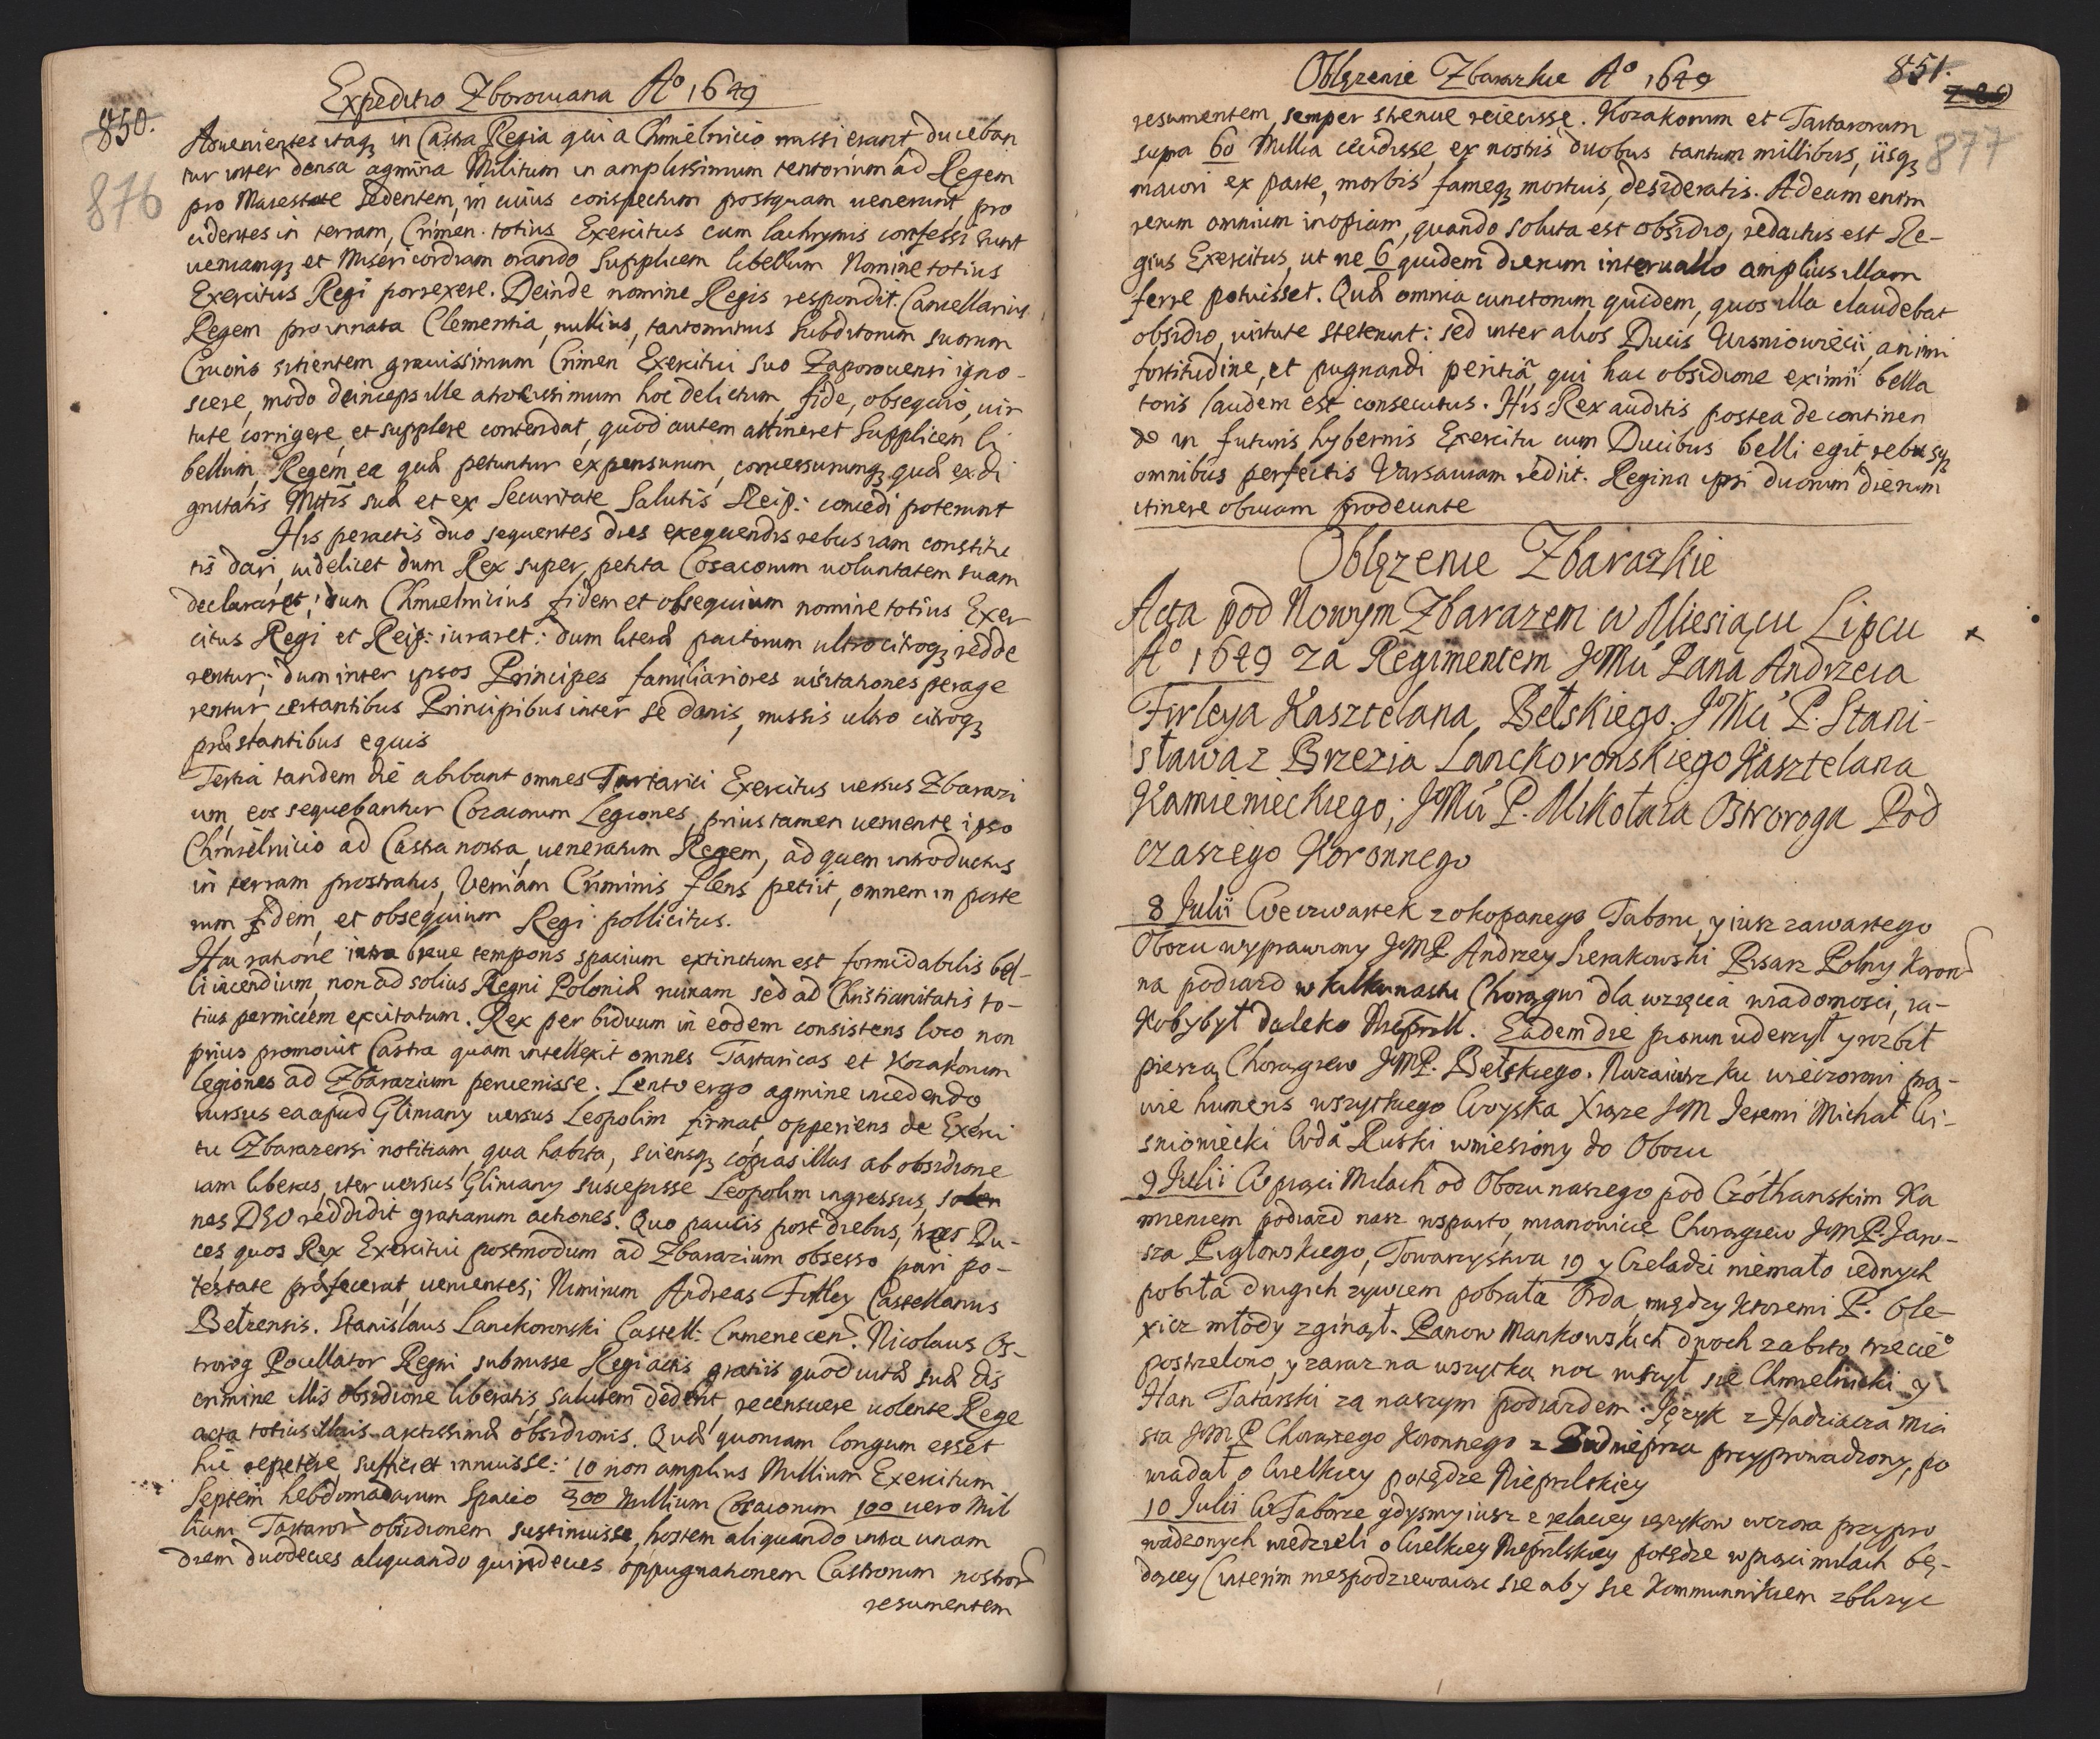 850.
876
Expeditio Zborowiana Aº 1649
Aduenientes itaqȝ in Castra Regia qui a Chmielnicio missi erant duceban
tur inter densa agmina Militum in amplissimum tentorium ad Regem
pro Maiestate sedentem, in cuius conspectum postquam uenerunt, pro
cidentes in terram, Crimen totius Exercitus cum lachrymis confessi sunt
ueniamqȝ et Misericordiam orando supplicem libellum Nomine totius
Exercitus Regi porrexere. Deinde nomine Regis respondit Cancellarius
Regem pro innata Clementia, nullius, tantominus Subditorum suorum
Cruoris sitientem, grauissimum Crimen Exercitui suo Zaporouensi igno-
scere, modo deinceps ille atrocissimum hoc delictum, fide, obsequio, uir
tute corrigere, et supplere contendat, quod autem attineret Supplicem li
bellum, Regem ea quæ petuntur expensurum, concessurumqȝ quæ ex di
gnitatis Mttis suæ et ex Securitate Salutis Reip: concedi poterunt
His peractis duo sequentes dies exequendis rebus iam constitu
tis dari, uidelicet dum Rex super petita Cosacorum uoluntatem suam
declararet; dum Chmielnicius fidem et obsequium nomine totius Exer
citus Regi et Reip: iuraret: dum literæ pactorum ultro citroqȝ redde
rentur; dum inter ipsos Principes familiariores uisitationes perage
rentur, certantibus Principibus inter se donis, missis ultro citroqȝ
præstantibus equis
Tertia tandem die abibant omnes Tartarici Exercitus uersus Zbarazi
um, eos sequebantur Cozacorum Legiones, prius tamen ueniente ipso
Chmielnicio ad Castra nostra, ueneratum Regem, ad quem introductus
in terram prostratus, Veniam Criminis flens petiit, omnem in poste
rum fidem, et obsequium Regi pollicitus.
Hac ratione intra breue temporis spacium extinctum est formidabilis bel-
li incendium, non ad solius Regni Poloniæ ruinam sed ad Christianitatis to-
tius perniciem excitatum. Rex per biduum in eodem consistens loco non
prius promouit Castra quam intellexit omnes Tartaricas et Kozakorum
legiones ad Zbarazium peruenisse. Lento ergo agmine incedendo
rursus ea apud Gliniany uersus Leopolim firmat, opperiens de Exerci
tu Zbarazensi notitiam, qua habita, sciensqȝ copias illas ab obsidione
iam liberas, iter uersus Gliniany suscepisse Leopolim ingressus, solen
nes DEO reddidit gratiarum actiones. Quo paucis post diebus, tres Du-
ces, quos Rex Exercitui postmodum ad Zbarazium obsesso pari po-
testate præfecerat, uenientes; Nimirum Andreas Firley Castellanus
Bełzensis. Stanislaus Lanckoronski Castell: Camenecen. Nicolaus Os-
trorog Pocillator Regni submisse Regi actis gratiis quod uitæ suæ dis
crimine illis obsidione liberatis, salutem dederit, recensuere uolente Rege
acta totius illius arctissimæ obsidionis. Quæ quoniam longum esset
hic repetere, sufficiet innuisse: 10 non amplius Millium Exercitum
Septem hebdomadarum Spacio 300 Millium Cosacorum 100 uero Mil
lium Tartaror obsidionem sustinuisse, hostem aliquando intra unam
diem duodecies aliquando quindecies oppugnationem Castrorum nostror
resumentem
Oblęzenie Zbarazkie Aº 1649
851.
877
resumentem, semper strenue reiecisse. Kozakorum et Tartarorum
supra 60 Millia cecidisse, ex nostris duobus tantum millibus, iisqȝ
maiori ex parte, morbis fameqȝ mortuis, desideratis. Ad eam enim
rerum omnium inopiam, quando soluta est obsidio, redactus est Re-
gius Exercitus, ut ne 6 quidem dierum interuallo amplius illam
ferre potuisset. Quæ omnia cunctorum quidem, quos illa claudebat
obsidio, uirtute steterunt: sed inter alios Ducis Wisniowiecii, animi
fortitudine, et pugnandi peritia, qui hac obsidione eximii bella
toris laudem est consecutus. His Rex auditis postea de continen
do in futuris hybernis Exercitu cum Ducibus belli egit, rebusqȝ
omnibus perfectis Varsauiam rediit. Regina ipsi duorum dierum
itinere obuiam prodeunte
Oblęzenie Zbarazkie
Acta pod Nowym Zbarazem w Miesiącu Lipcu
Aº 1649 za Regimentem JeMci Pana Andrzeia
Firleya Kasztelana, Bełskiego. JeMci P. Stani-
sława z Brzezia Lanckoronskiego Kasztelana
Kamienieckiego; JeMci P. Mikołaia Ostroroga Pod
czaszego Koronnego
8 Julii We czwartek z okopanego Taboru, y iusz zawartego
Obozu wyprawiony JeMP Andrzey Sierakowski Pisarz Polny Koron
na podiazd w kilkunastu Choragwi dla wzięcia wiadomosci, ia-
koby był daleko Nieprill. Eadem die piorun uderzył y rozbił
pieszą Choragiew JeMP. Bełskiego. Nazaiutrz ku wieczorowi pra-
wie humeris wszytkiego Woyska Xiąze JeM Jeremi Michał Wi-
sniowiecki Wda Ruski wniesiony do Obozu
9 Julii W pięci Milach od Obozu naszego pod Czołhanskim Ka
mieniem podiazd nasz wsparto, mianowicie Choragiew JeMP. Janu-
sza Piglowskiego, Towarzystwa 19 y Czeladzi niemało iednych
pobiła drugich zywcem pobrała Orda, między ktoremi P. Ole-
xicz młody zginął. Panow Mankowskich dwoch zabito, trzecieº
postrzelono, y zaraz na wszytką noc ruszył sie Chmielnicki y
Han Tatarski za naszym podiazdem. Język z Hadziacza Mia
sta JeMP Chorązego Koronnego z Zadnieprza przyprowadzony, po
wiadał o Wielkiey potędze Nieprilskiey
10 Julii W Taborze gdysmy iusz z relaciey ięzykow wczora przypro
wadzonych wiedzieli o Wielkiey Nieprilskiey potędze w pięci milach bę-
dącey (interim niespodziewaiąc sie aby sie Kommunnikiem zblizyc